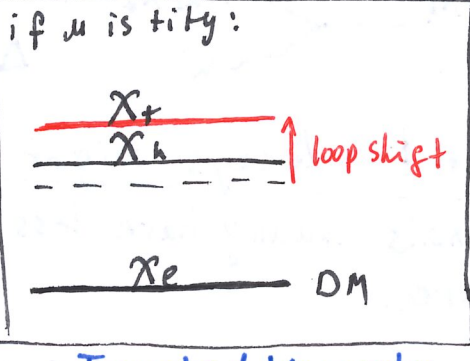 if μ is tity:
χ₊
χₕ
loop shift
χₑ DM